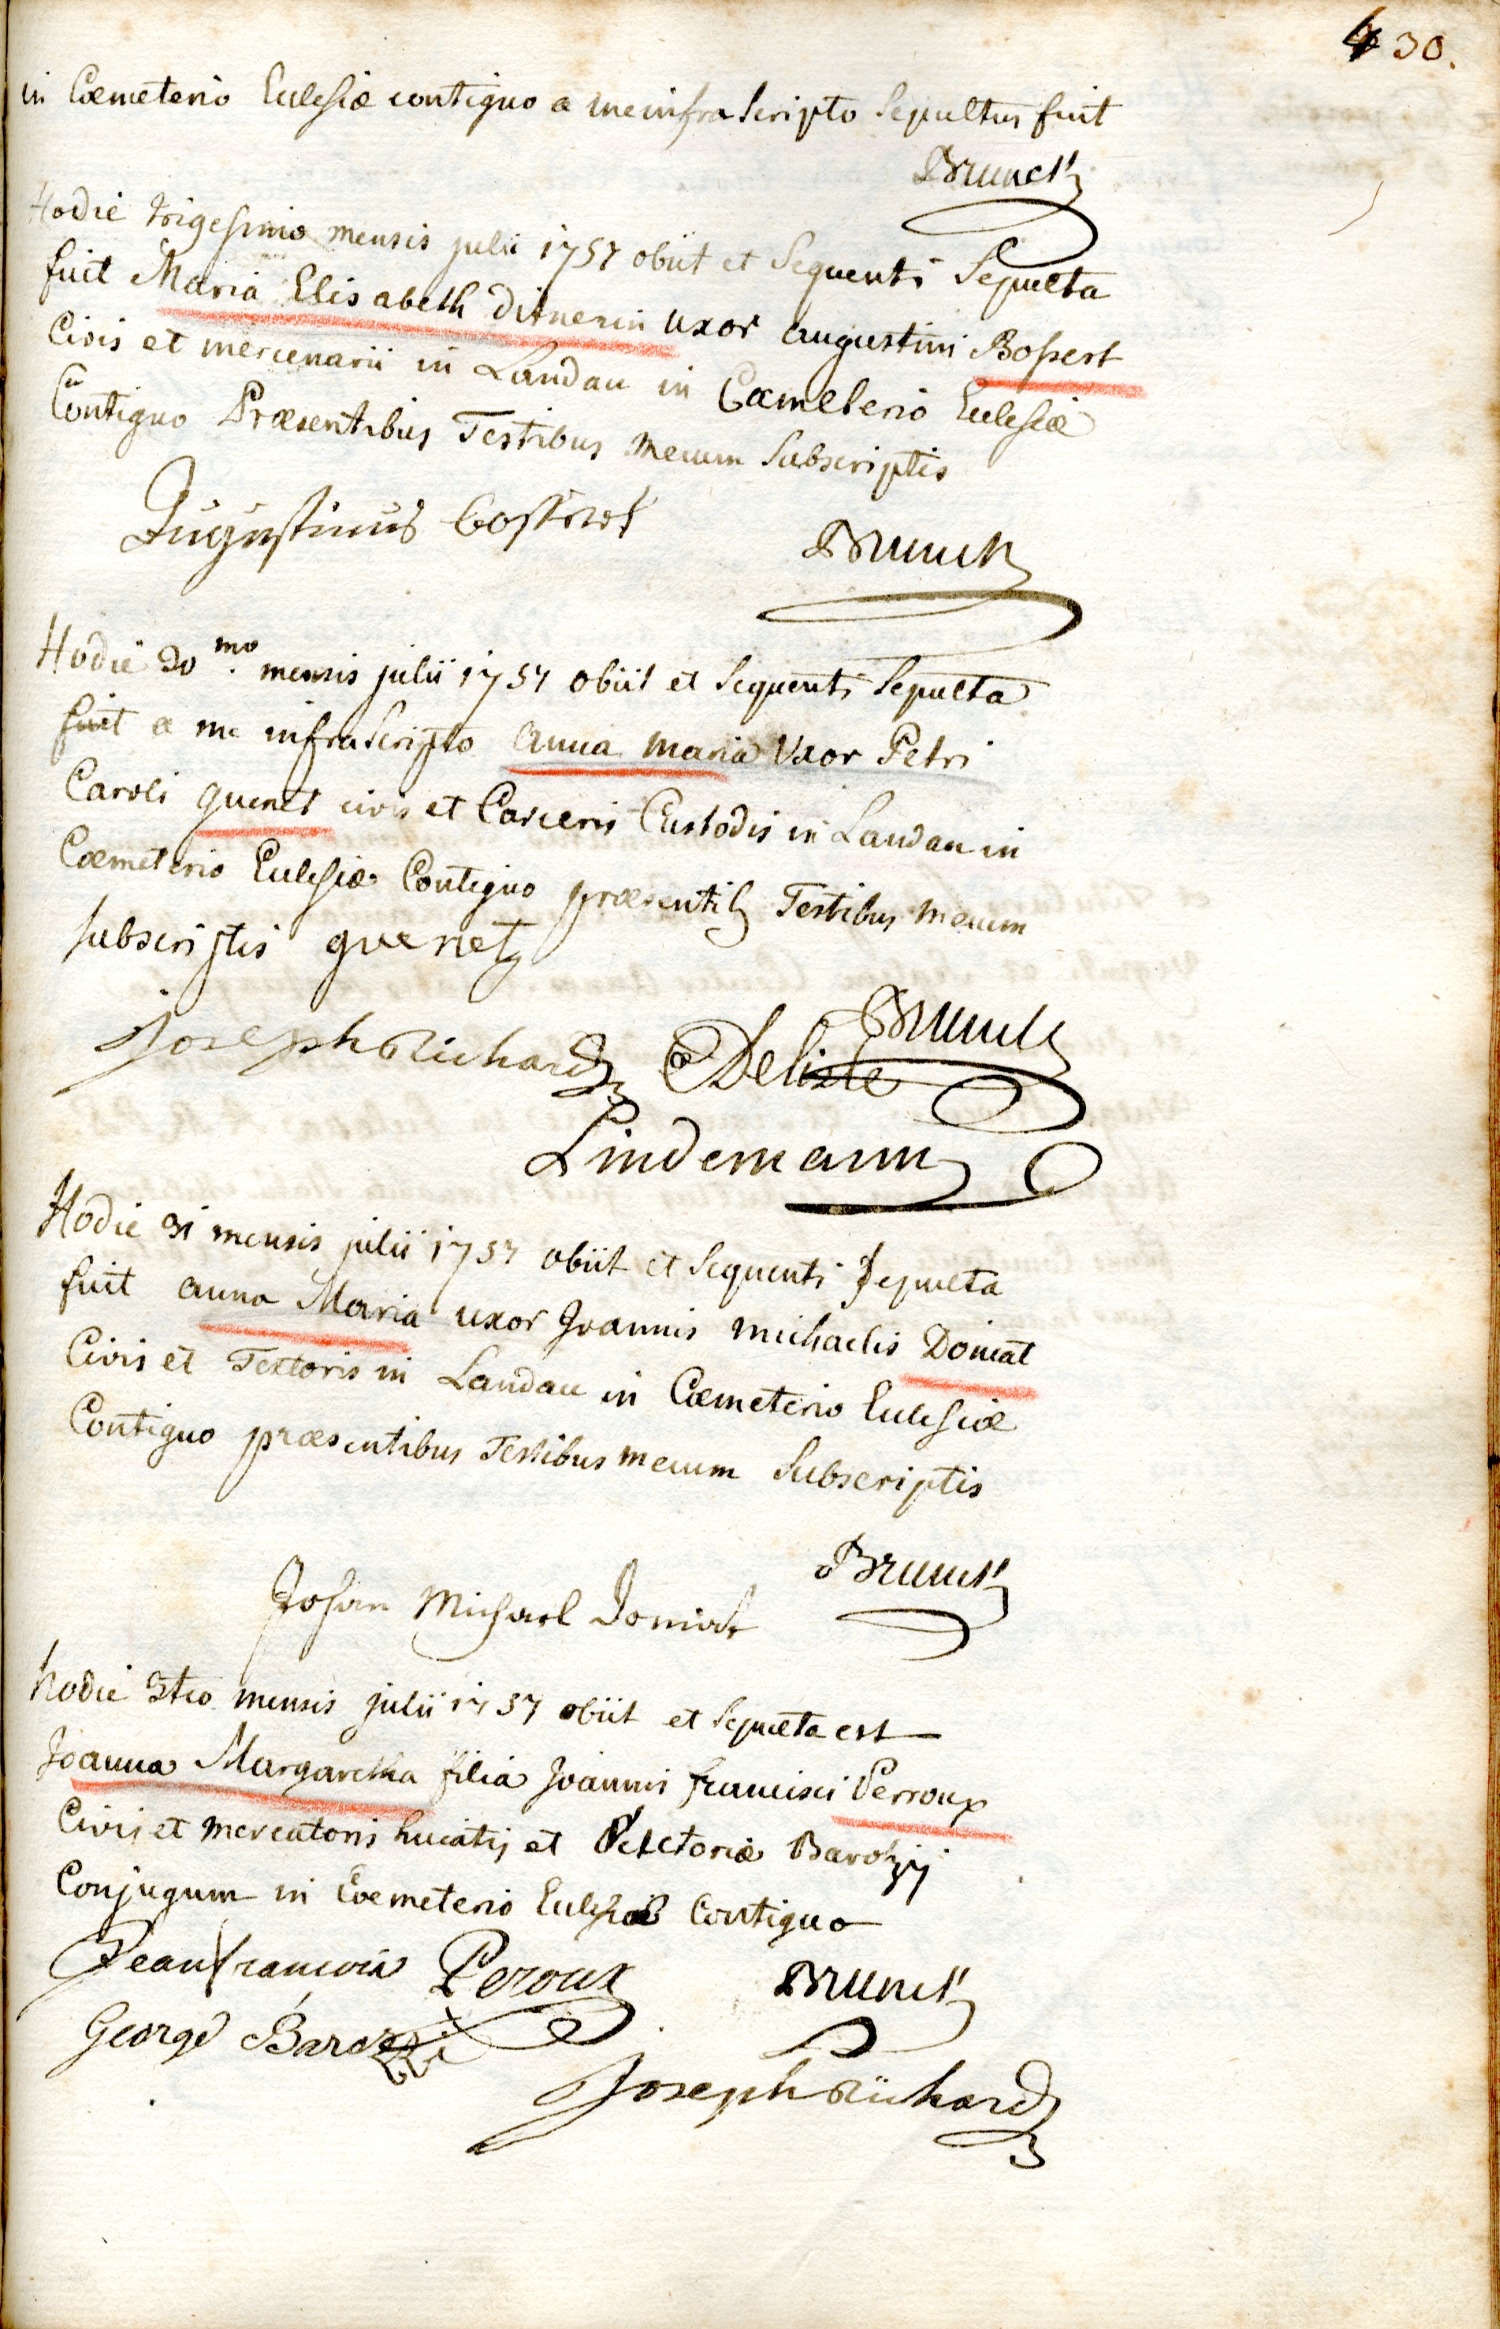 430.
in Cœmeterio Ecclesiæ contiguo a me infra scripto sepultus fuit
Brunck
Hodie trigesimo mensis julii 1757 obiit et sequenti sepulta
fuit Maria Elisabeth Ditnerin uxor augustini Bossert
Civis et mercenarii in Landau in Cœmeterio Ecclesiæ
Contiguo Præsentibus Testibus mecum subscriptis
Augustinus Bossert
Brunck
Hodie 30mo mensis julii 1757 obiit et sequenti sepulta
fuit a me infra scripto anna maria Uxor Petri
Caroli quenet civis et Carceris Custodis in Landau in
Cœmeterio Ecclesiæ Contiguo præsentib9 Testibus mecum
subscriptis quenet
Brunck
Joseph Richard Delisle
Lindemann
Hodie 31 mensis julii 1757 obiit et sequenti sepulta
fuit anna Maria uxor Joannis michaelis Doniat
Civis et Textoris in Landau in Cœmeterio Ecclesiæ
Contiguo præsentibus Testibus mecum subscriptis
Brunck
Johan Michael Doniat
hodie mensis julii 1757 obiit et sepulta est
Joanna Margaretha filia Joannis francisci Perroux
Civis et mercatoris huiatis et Barozzy
Conjugum in Cœmeterio Ecclesiæ Contiguo
Jean francois Peroux
Brunck
George Barozzi
Joseph Richard